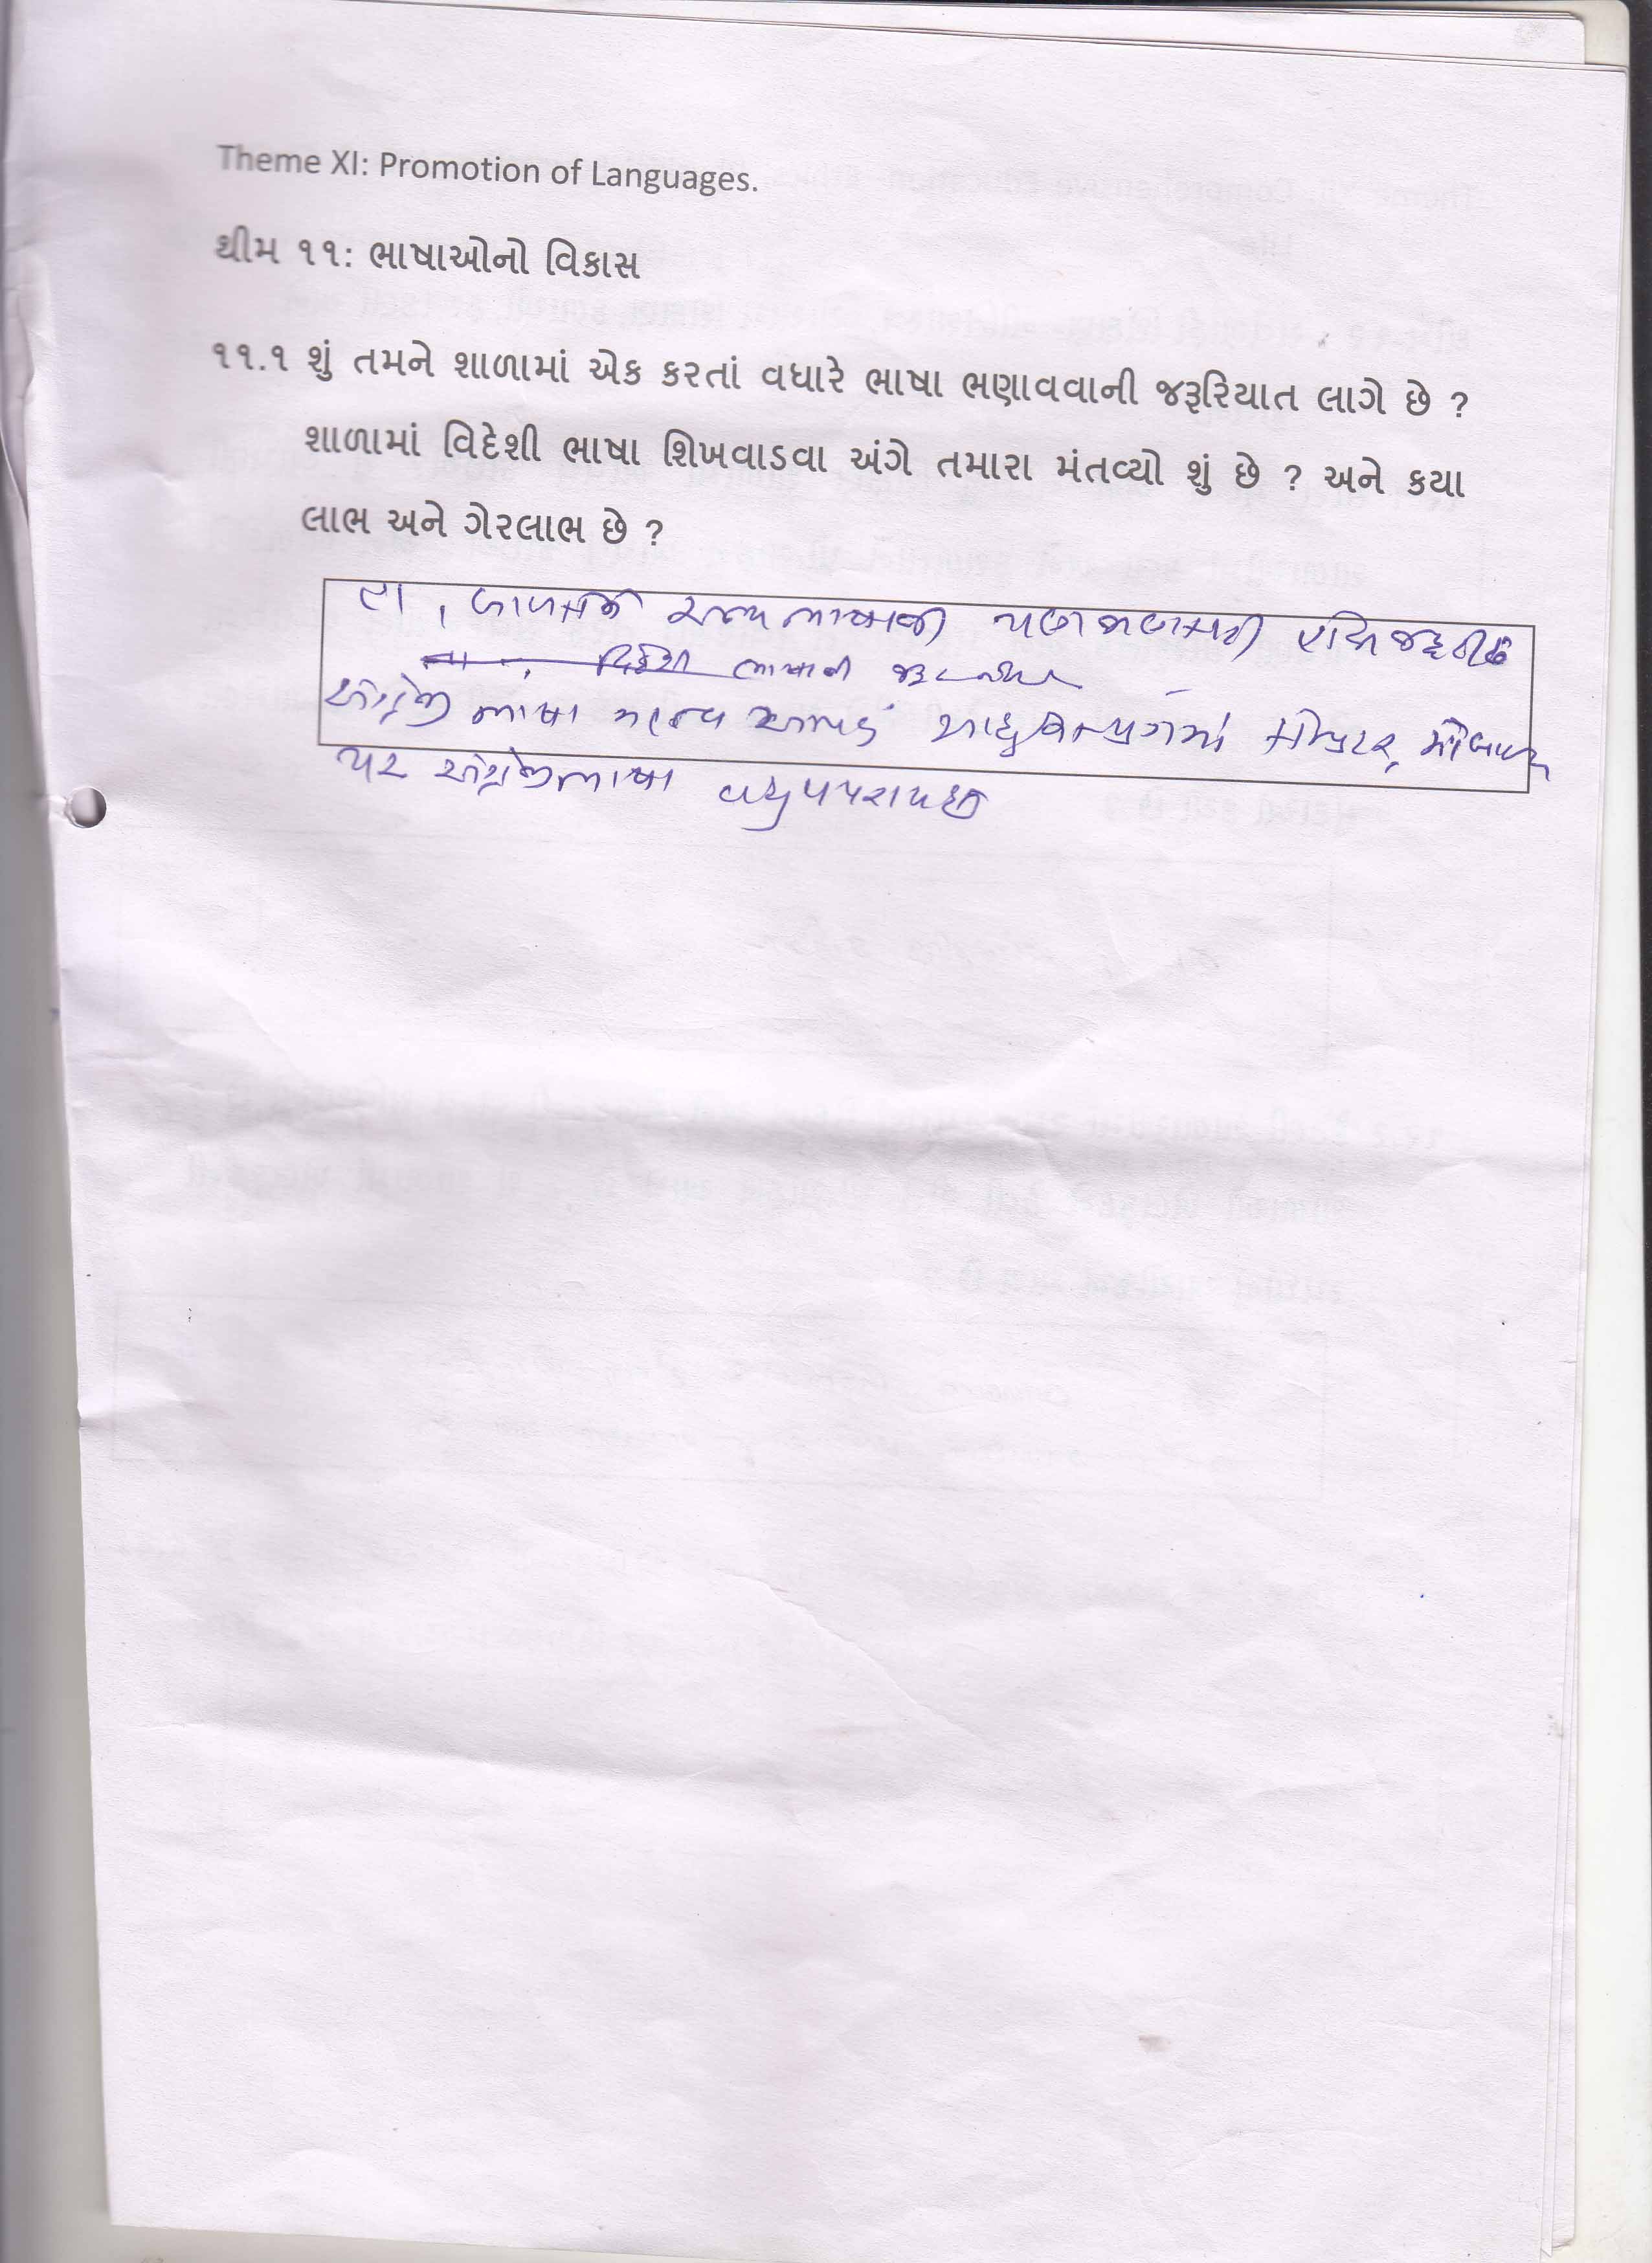 Theme XI: Promotion of Languages.
થીમ ૧૧: ભાષાઓનો વિકાસ
૧૧.૧ શું તમને શાળામાં એક કરતાં વધારે ભાષા ભણાવવાની જરૂરિયાત લાગે છે ?
શાળામાં વિદેશી ભાષા શિખવાડવા અંગે તમારા મંતવ્યો શું છે ? અને કયા
લાભ અને ગેરલાભ છે ?
હા , બાળકને અન્ય ભાષાની પણ જાણકારી હોવી જરૂરી છે
ના , વિદેશી ભાષાની જરૂર નથી
અંગ્રેજી ભાષા મહત્વ આપવું આધુનિક યુગમાં કોમ્પ્યુટર, મોબાઇલ
પર અંગ્રેજી ભાષા વધુ વપરાય છે